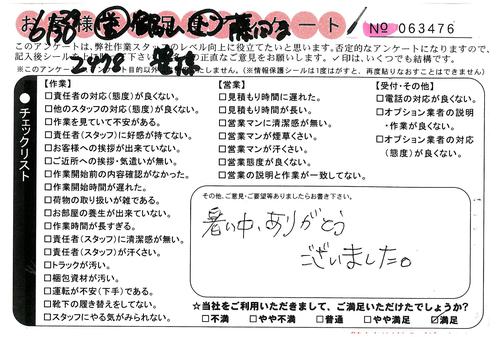 お客様満足度アンケート
No 063476
このアンケートは、弊社作業スタッフのレベル向上に役立てたいと思います。否定的なアンケートになりますので、
記入後シール
の正直なご意見をお願いします。✓印は、いくつでも結構です。
※このアンケート目的以外
(※情報保護シールは1度がはすと、再度貼りなおすことはできません)
チェックリスト
【作業】
□責任者の対応(態度)が良くない。
□他のスタッフの対応(態度)が良くない。
□作業を見ていて不安がある。
□責任者(スタッフ)に好感が持てない。
□お客様への挨拶が出来ていない。
□ご近所への挨拶・気遣いが無い。
□作業開始前の内容確認がなかった。
□作業開始時間が遅れた。
□荷物の取り扱いが雑である。
□お部屋の養生が出来ていない。
□作業時間が長すぎる。
□責任者(スタッフ)に清潔感が無い。
□責任者(スタッフ)が汗くさい。
□トラックが汚い。
□梱包資材が汚い。
□運転が不安(下手)である。
□靴下の履き替えをしてない。
□スタッフにやる気がみられない。
【営業】
□見積もり時間に遅れた。
□見積もり時間が長い。
□営業マンに清潔感が無い。
□営業マンが煙草くさい。
□営業マンが汗くさい。
□営業態度が良くない。
□営業の説明と作業が一致してない。
【受付・その他】
□電話の対応が良くない。
□オプション業者の説明
・作業が良くない。
□オプション業者の対応
(態度)が良くない。
その他、ご意見・ご要望等ありましたらお書き下さい。
暑い中、ありがとう
ございました。
☆当社をご利用いただきまして、ご満足いただけたでしょうか?
□不満 □やや不満 □普通 □やや満足 ☑満足